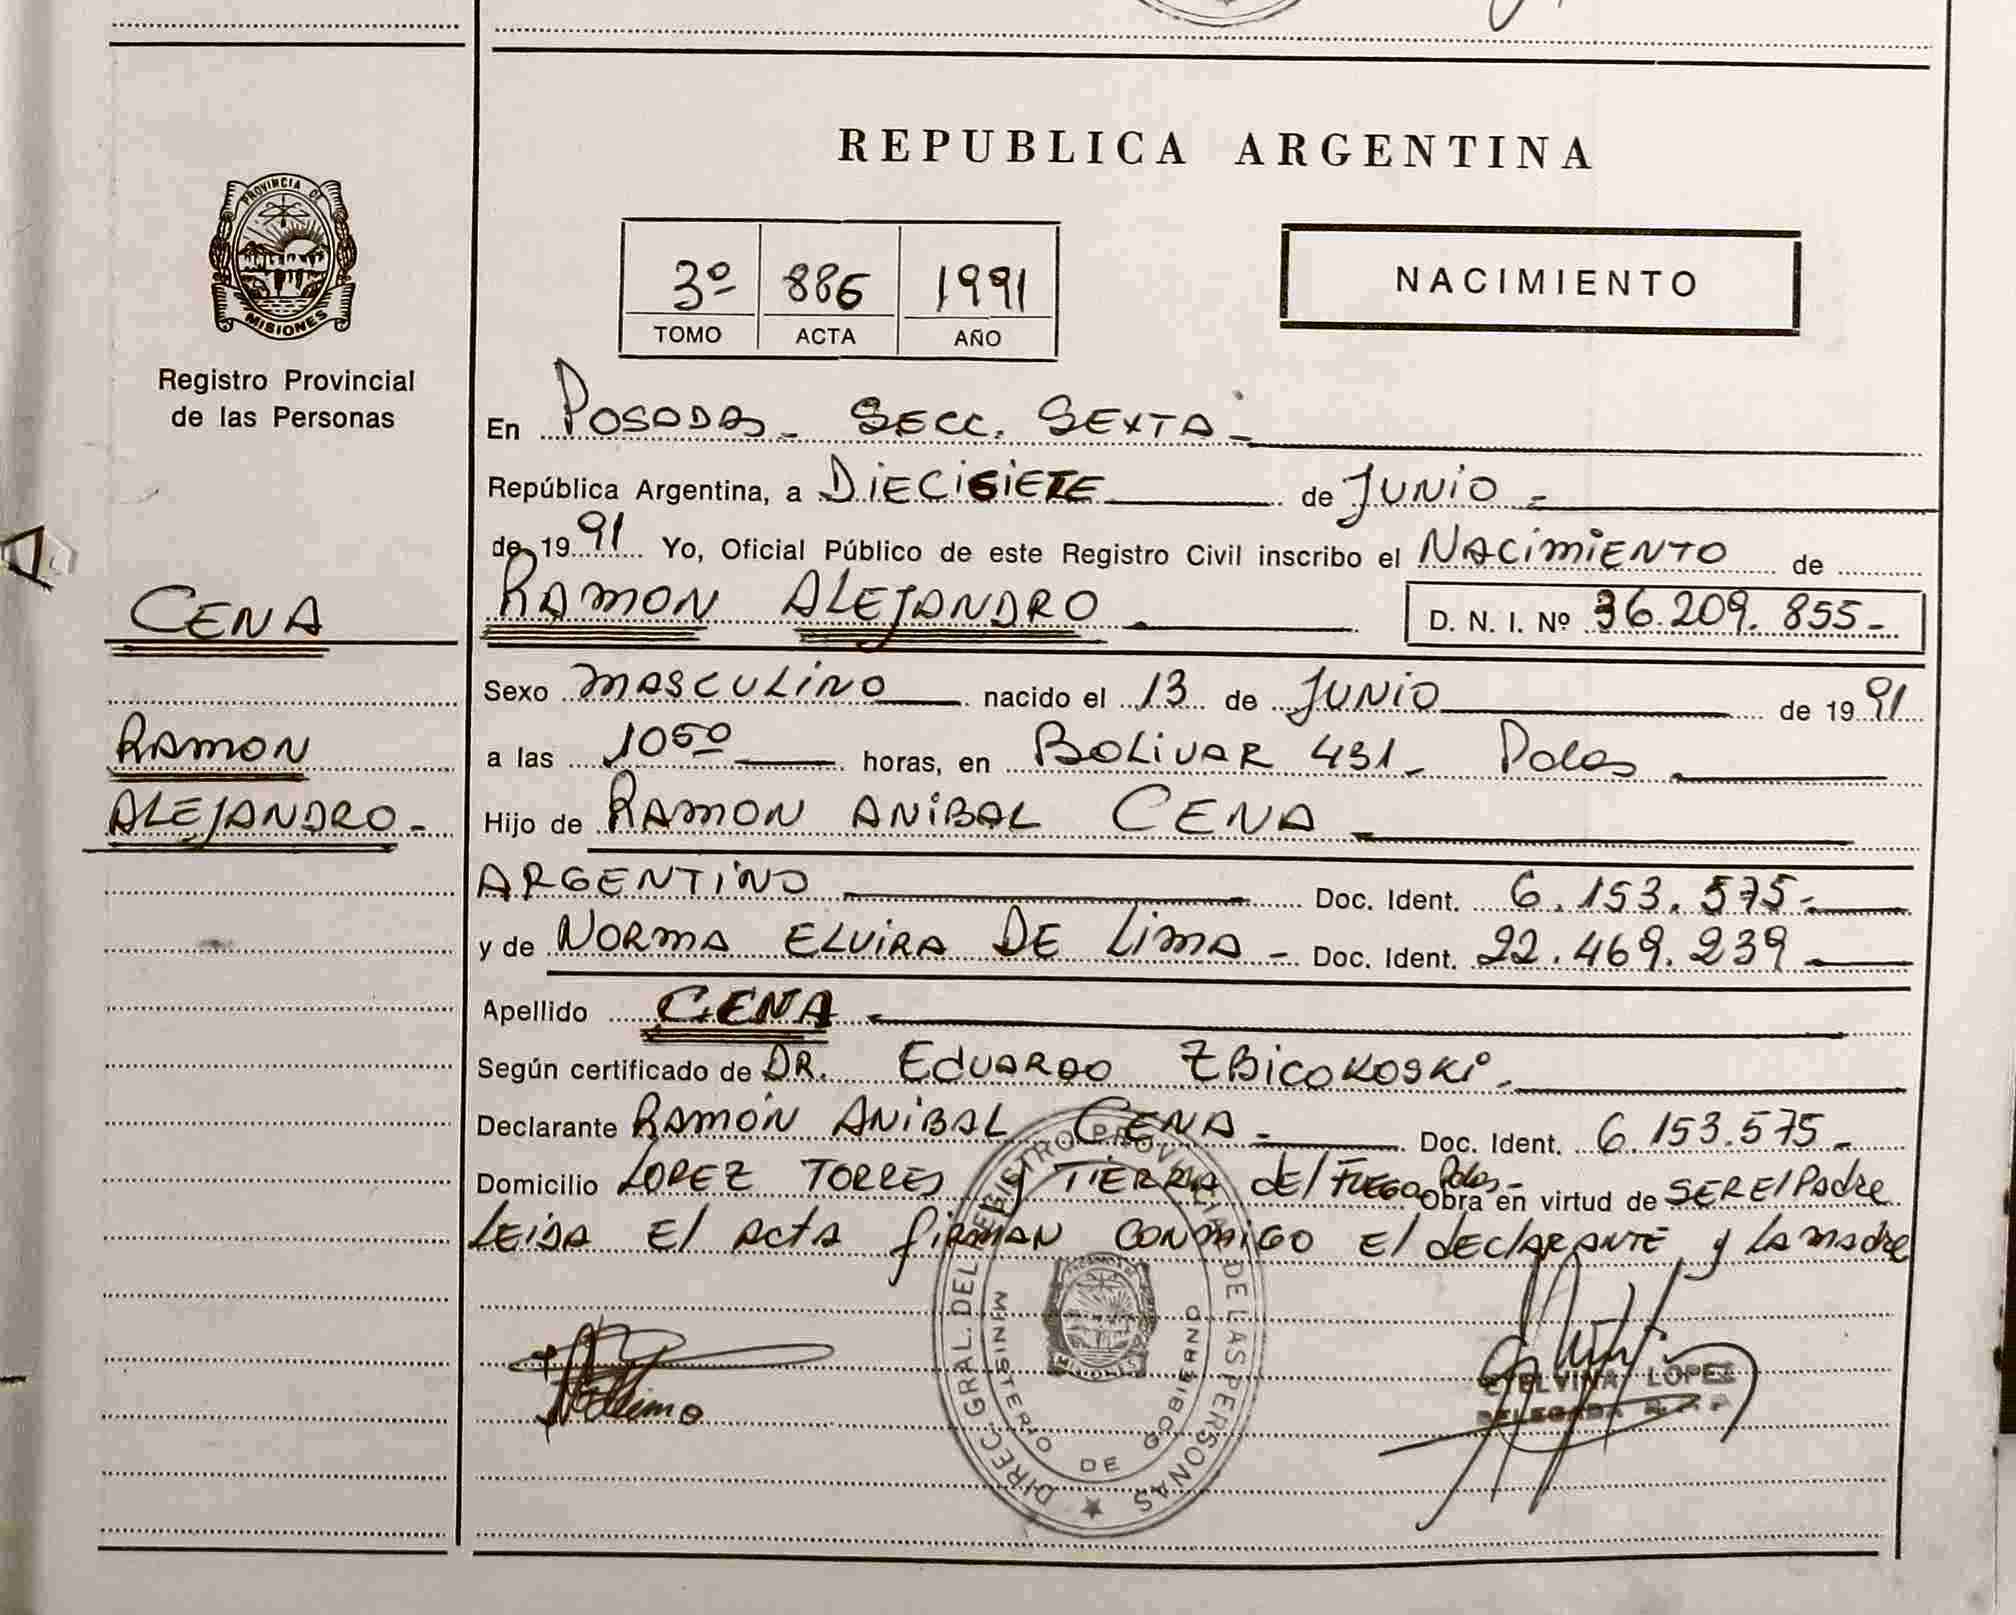 REPUBLICA ARGENTINA
PROVINCIA DE
MISIONES
Registro Provincial
de las Personas
3º 886 1991
TOMO ACTA AÑO
NACIMIENTO
En POSADAS - SECC. SEXTA -
República Argentina, a DIECISIETE de JUNIO -
de 19 91 Yo, Oficial Público de este Registro Civil inscribo el NACIMIENTO de
CENA
RAMON ALEJANDRO D. N. I. Nº 36.209.855-
Sexo MASCULINO nacido el 13 de JUNIO de 19 91
RAMON
a las 10 50 horas, en BOLIVAR 431 - Pdas
ALEJANDRO -
Hijo de RAMON ANIBAL CENA
ARGENTINO Doc. Ident. 6.153.575-
y de NORMA ELVIRA DE LIMA - Doc. Ident. 22.469.239
Apellido CENA
Según certificado de DR. EDUARDO ZBICOKOSKI
Declarante RAMÓN ANIBAL CENA - Doc. Ident. 6.153.575-
Domicilio LOPEZ TORRES y TIERRA del FUEGO Pdas - obra en virtud de SER El Padre
LEIDA El acta firman conmigo El declarante y la madre
DIRECC. GRAL. DEL REGISTRO PROVINCIAL DE LAS PERSONAS
MINISTERIO DE GOBIERNO
MISIONES
ETELVINA LOPEZ
DELEGADA R.P.P